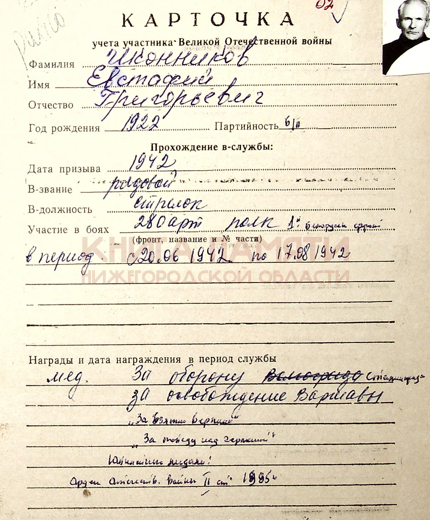 02
КАРТОЧКА
учета участника Великой Отечественной войны
Фамилия Иконников
Имя Евстафий
Отчество Григорьевич
Год рождения 1922 Партийность б/п
Прохождение в-службы:
Дата призыва 1942
В-звание рядовой
В-должность стрелок
Участие в боях 280 арт полк 1й
(фронт, название и № части)
в период с 20.06 1942 по 17.08 1942
КНИГА ПАМЯТИ
НИЖЕГОРОДСКОЙ ОБЛАСТИ
Награды и дата награждения в период службы
мед. За оборону Сталинграда
За освобождение Варшавы
„За взятие Берлина"
„За победу над Германией"
Юбилейные медали:
Орден Отечеств. Войны II ст 1985г